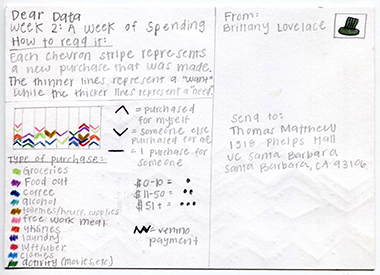 Dear Data
Week 2: A Week of Spending
How to read it:
Each chevron stripe represents
a new purchase that was made.
The thinner lines represent a "want"
while the thicker lines represent a "need".
= purchased
for myself
= someone else
purchased for me
= I purchase for
someone
Type of purchase:
groceries
food out
coffee
alcohol
/house supplies
free work meal
utilities
laundry
lyft/uber
clothes
activity (movies, etc)
$0-10 =
$11-50 =
$51+ =
= venmo
payment
From:
Brittany Lovelace
Send to:
Thomas Matthew
1318 Phelps Hall
UC Santa Barbara
Santa Barbara, CA 93106